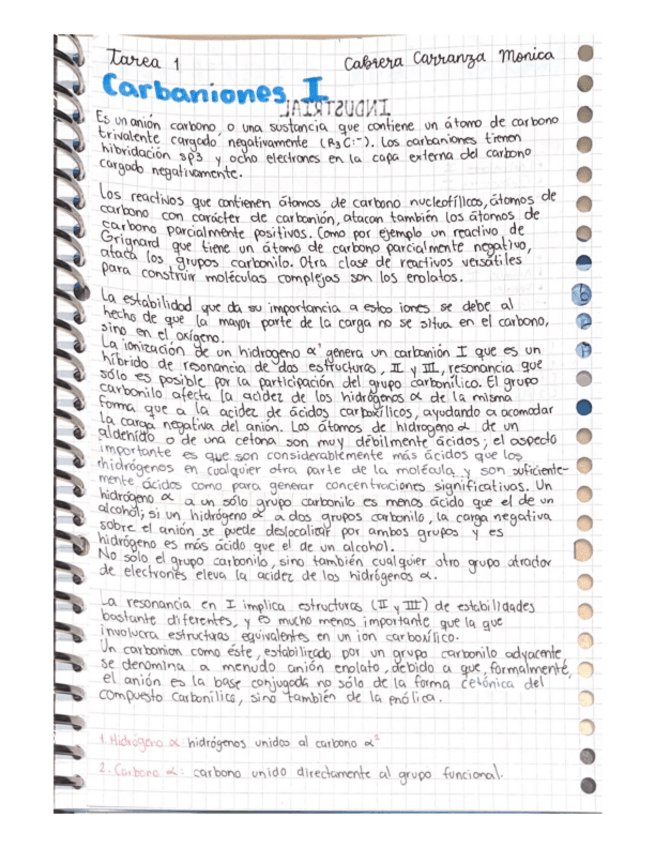 Tarea 1
Cabrera Carranza Monica
Carbaniones I
INDUSTRIAL
Es un anión carbono, o una sustancia que contiene un átomo de carbono
trivalente cargado negativamente (R3C:-). Los carbaniones tienen
hibridación sp3 y ocho electrones en la capa externa del carbono
cargado negativamente.
Los reactivos que contienen átomos de carbono nucleofílicos, átomos de
carbono con carácter de carbonión, atacan también los átomos de
carbono parcialmente positivos. Como por ejemplo un reactivo de
Grignard que tiene un átomo de carbono parcialmente negativo,
ataca los grupos carbonilo. Otra clase de reactivos versátiles
para construir moléculas complejas son los enolatos.
La estabilidad que da su importancia a estos iones se debe al
hecho de que la mayor parte de la carga no se situa en el carbono,
sino en el oxígeno.
La ionización de un hidrogeno α¹ genera un carbanión I que es un
híbrido de resonancia de dos estructuras, II y III, resonancia que
sólo es posible por la participación del grupo carbonílico. El grupo
carbonilo afecta la acidez de los hidrógenos α de la misma
forma que a la acidez de ácidos carboxílicos, ayudando a acomodar
la carga negativa del anión. Los átomos de hidrogeno α de un
aldehído o de una cetona son muy débilmente ácidos; el aspecto
importante es que son considerablemente más ácidos que los
hidrógenos en cualquier otra parte de la molécula y son suficiente-
mente ácidos como para generar concentraciones significativas. Un
hidrógeno α a un sólo grupo carbonilo es menos ácido que el de un
alcohol; si un hidrógeno α a dos grupos carbonilo, la carga negativa
sobre el anión se puede deslocalizar por ambos grupos y es
hidrógeno es más ácido que el de un alcohol.
No sólo el grupo carbonilo, sino también cualquier otro grupo atractor
de electrones eleva la acidez de los hidrógenos α.
La resonancia en I implica estructuras (II y III) de estabilidades
bastante diferentes, y es mucho menos importante que la que
involucra estructuras equivalentes en un ion carboxílico.
Un carbonion como éste, estabilizado por un grupo carbonilo adyacente,
se denomina a menudo anión enolato, debido a que, formalmente,
el anión es la base conjugada no sólo de la forma cetónica del
compuesto Carbonílico, sino también de la enólica.
1. Hidrógeno α: hidrógenos unidos al carbono α²
2. Carbono α: carbono unido directamente al grupo funcional.